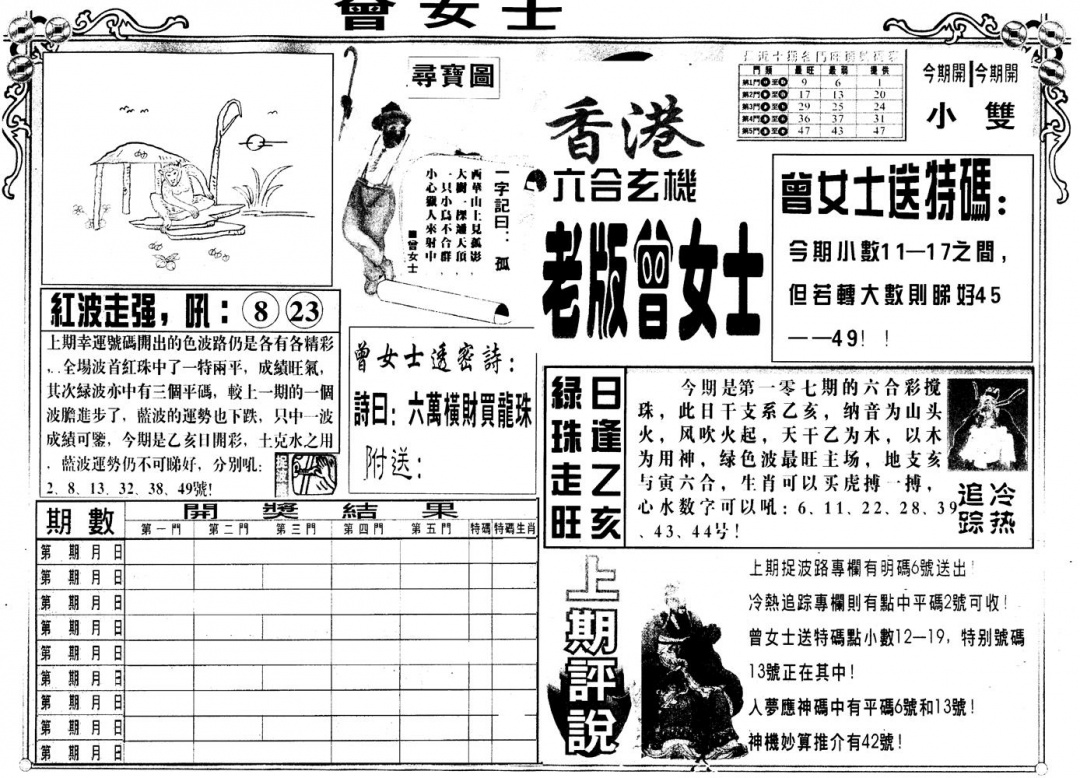 曾女士
尋寶圖
一字記曰：孤
西華山上見孤影，
大樹一探通天頂，
一只小鳥不合群，
小心獵人來射中。
■曾女士
香港
六合玄機
老版曾女士
門類 最旺 最弱 提供
第1門 至 9 6 1
第2門 至 17 13 20
第3門 至 29 25 24
第4門 至 36 37 31
第5門 至 47 43 47
今期開 今期開
小 雙
曾女士送特碼：
今期小數11—17之間，
但若轉大數則睇好45
——49！！
紅波走强，吼：8 23
上期幸運號碼開出的色波路仍是各有各精彩
，全場波首紅珠中了一特兩平，成績旺氣，
其次緑波亦中有三個平碼，較上一期的一個
波膽進步了，藍波的運勢也下跌，只中一波
成績可鑒，今期是乙亥日開彩，土克水之用
，藍波運勢仍不可睇好，分别吼：
2、8、13、32、38、49號！
捉波路
曾女士透密詩：
詩曰：六萬橫財買龍珠
附送：
日逢乙亥
綠珠走旺
今期是第一零七期的六合彩搅
珠，此日干支系乙亥，纳音为山头
火，风吹火起，天干乙为木，以木
为用神，绿色波最旺主场，地支亥
与寅六合，生肖可以买虎搏一搏，
心水数字可以吼：6、11、22、28、39
、43、44号！
冷热
追踪
期數 開獎結果
第一門 第二門 第三門 第四門 第五門 特碼 特碼生肖
第 期 月 日
第 期 月 日
第 期 月 日
第 期 月 日
第 期 月 日
第 期 月 日
第 期 月 日
第 期 月 日
第 期 月 日
上期評說
上期捉波路專欄有明碼6號送出！
冷熱追踪專欄則有點中平碼2號可收！
曾女士送特碼點小數12—19，特别號碼
13號正在其中！
人夢應神碼中有平碼6號和13號！
神機妙算推介有42號！